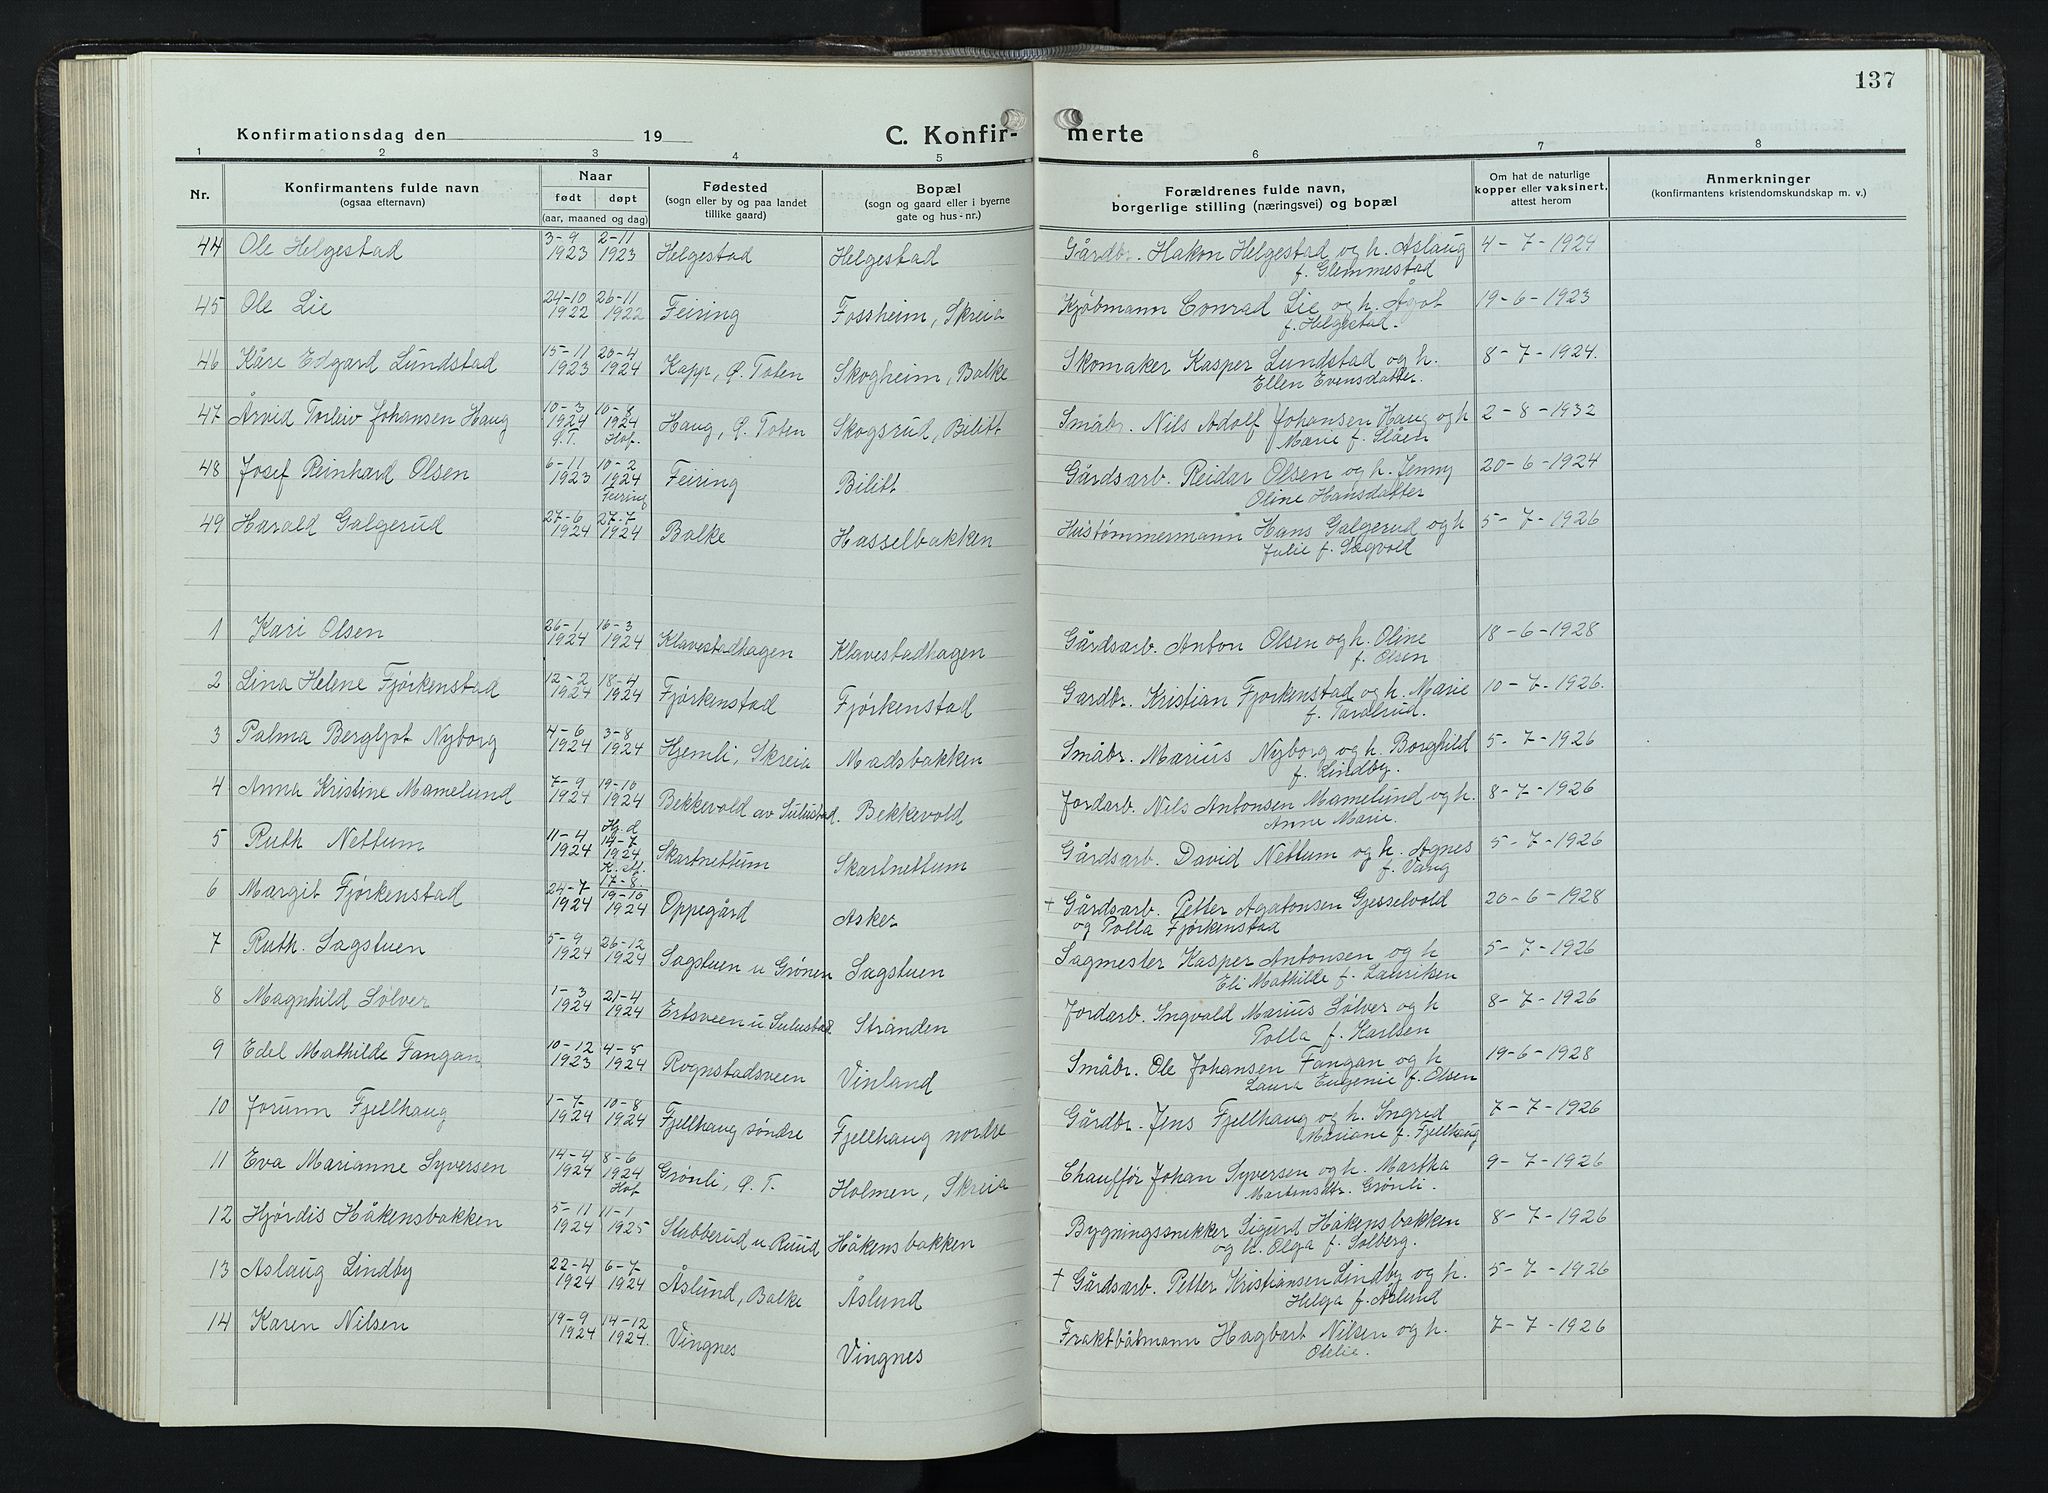 137
Konfirmationsdag den 19
C. Konfir- merte
1 2 3 4 5 6 7 8
Nr.
Konfirmantens fulde navn
(ogsaa efternavn)
Naar
født døpt
(aar, maaned og dag)
Fødested
(sogn eller by og paa landet
tillike gaard)
Bopæl
(sogn og gaard eller i byerne
gate og hus-nr.)
Forældrenes fulde navn,
borgerlige stilling (næringsvei) og bopæl
Om hat de naturlige
kopper eller vaksinert,
attest herom
Anmerkninger
(konfirmantens kristendomskundskap m. v.)
44 Ole Helgestad 3-9 1923 2-11 1923 Helgestad Helgestad Gårdbr. Hakon Helgestad og h. Aslaug 4-7-1924
f. Glemmestad
45 Ole Lie 24-10 1922 26-11 1922 Feiring Fossheim, Skreia Kjøbmann Conrad Lie og h. Ågot 19-6-1923
f. Helgestad.
46 Kåre Edgard Lundstad 15-11 1923 20-4 1924 Kapp, Ø. Toten Skogheim, Balke Skomaker Kasper Lundstad og h. 8-7-1924.
Ellen Evensdatter.
47 Arvid Torleiv Johansen Haug 10-3 1924 Ø.T. 10-8 1924 Hof. Haug, Ø. Toten Skogsrud, Bilitt Småbr. Nils Adolf Johansen Haug og h 2-8-1932
Marie f. Slåen
48 Josef Reinhard Olsen 6-11 1923 10-2 1924 Feiring Feiring Bilitt Gårdsarb. Reidar Olsen og h. Jenny 20-6-1924
Oline Hansdatter
49 Harald Galgerud 27-6 1924 27-7 1924 Balke Hasselbakken Hustømmermann Hans Galgerud og h 5-7-1926
Julie f. Sagvold
1 Kari Olsen 26-1 1924 16-3 1924 Klavestadhagen Klavestadhagen Gårdsarb. Anton Olsen og h. Oline 18-6-1928
f. Olsen
2 Lina Helene Fjørkenstad 12-2 1924 18-4 1924 Fjørkenstad Fjørkenstad Gardbr. Kristian Fjørkenstad og h. Marie 10-7-1926.
f. Taralrud.
3 Palma Bergljot Nyborg 4-6 1924 3-8 1924 Hjemli, Skreia Madsbakken Småbr. Marius Nyborg og h. Borghild 5-7-1926
f. Lindby.
4 Anna Kristine Mamelund 7-9 1924 19-10 1924 Bekkevold av Sulustad. Bekkevold Jordarb. Nils Antonsen Mamelund og h. 8-7-1926
Anne Marie.
5 Ruth Nettum 11-4 1924 Hj.d 14-7 1924 K. st. 17-8 Skartnettum Skartnettum Gårdsarb. David Nettum og h. Agnes 5-7-1926
f. Vang
6 Margit Fjørkenstad 24-7 1924 19-10 1924 Oppegård Asker + Gårdsarb. Petter Agatonsen Gjesselvold 20-6-1928
og Polla Fjørkenstad
7 Ruth. Sagstuen 5-9 1924 26-12 1924 Sagstuen u Grønen Sagstuen Sagmester Kasper Antonsen og h 5-7-1926
Eli Mathilde f. Lauriken
8 Magnhild Sølver 1-3 1924 21-4 1924 Ertsveen u Sulustad Stranden Jordarb. Ingvald Marius Sølver og h 8-7-1926
Polla f. Karlsen
9 Edel Mathilde Fangan 10-12 1923 4-5 1924 Rognstadsveen Vinland Småbr. Ole Johansen Fangan og h 19-6-1928
Laura Eugenie f. Olsen
10 Jorunn Fjellhaug 1-7 1924 10-8 1924 Fjellhaug søndre Fjellhaug nordre Gårdbr. Jens Fjellhaug og h. Ingrid 7-7-1926
Mariane f. Fjellhaug
11 Eva Marianne Syversen 14-4 1924 8-6 1924 Hof Grønli, Ø. T. Holmen, Skreia Chauffør Johan Syversen og h. Martha 9-7-1926
Martensdtr. Grønli.
12 Hjørdis Håkensbakken 5-11 1924 11-1 1925 Stabberud u Ruud Håkensbakken Bygningssnekker Sigurd Håkensbakken 8-7-1926
og h. Olga f. Solberg.
13 Aslaug Lindby 22-4 1924 6-7 1924 Åslund, Balke Åslund + Gårdsarb. Petter Kristiansen Lindby og h. 5-7-1926
Helga f. Åslund
14 Karen Nilsen 19-9 1924 14-12 1924. Vingnes Vingnes Fraktbåtmann Hagbart Nilsen og h. 7-7-1926
Otelie.